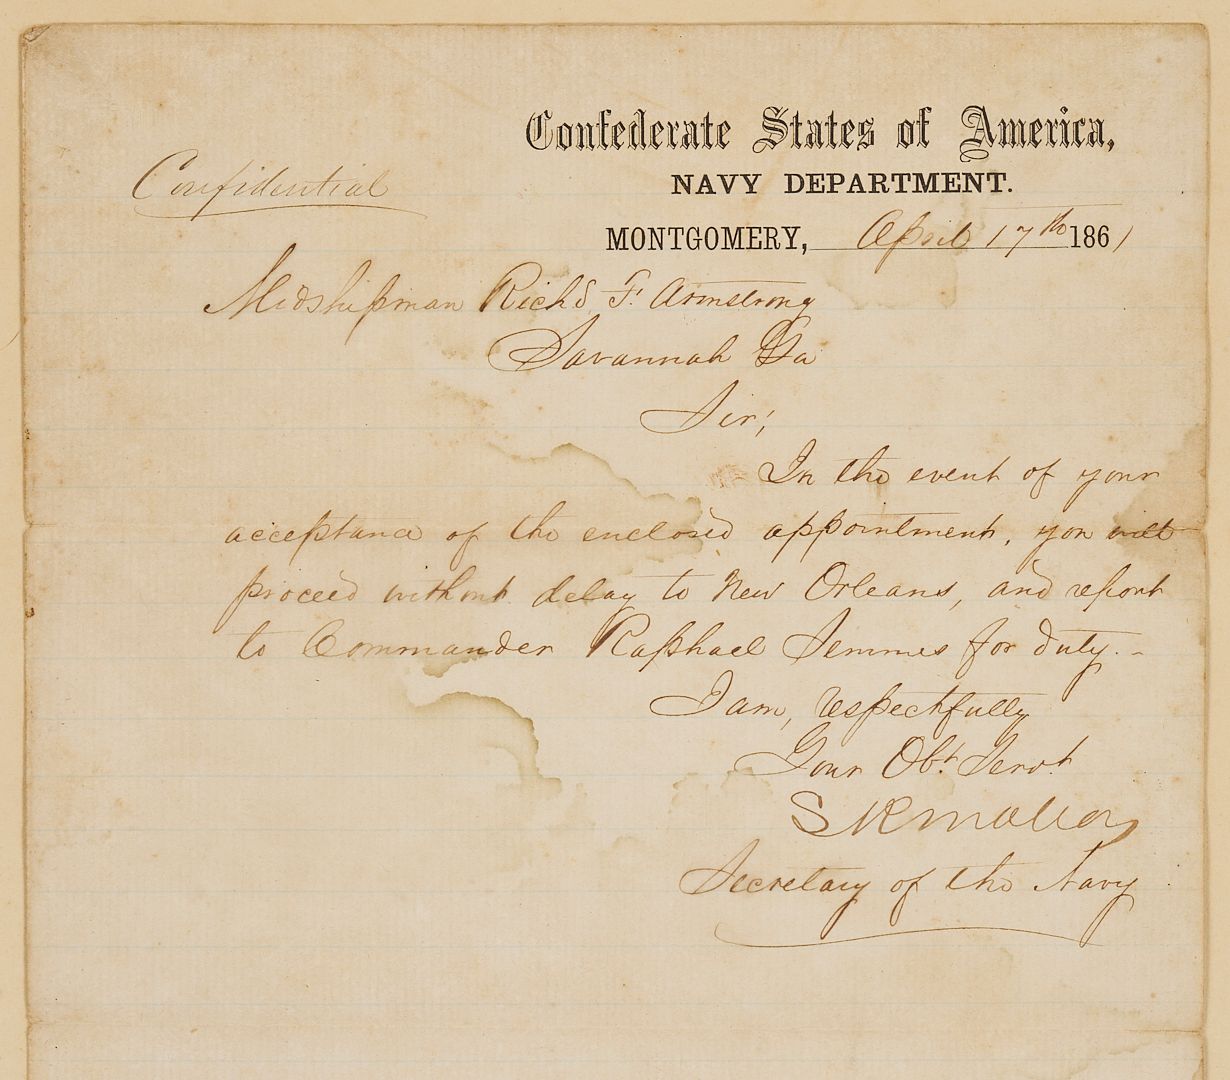 Confederate States of America,
Confidential
NAVY DEPARTMENT.
MONTGOMERY, April 17th 1861
Midshipman Richd. F. Armstrong
Savannah Ga
Sir;
In the event of your
acceptance of the enclosed appointment, you will
proceed without delay to New Orleans, and report
to Commander Raphael Semmes for duty.-
I am, respectfully
Your Obt. Servt.
S R Mallory
Secretary of the Navy